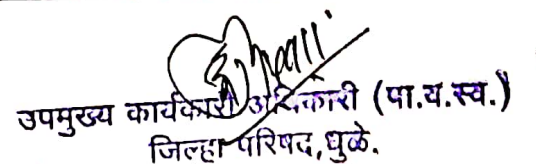 उपमुख्य कार्यकारी अधिकारी (पा.व.स्व.)
जिल्हा परिषद,धुळे.